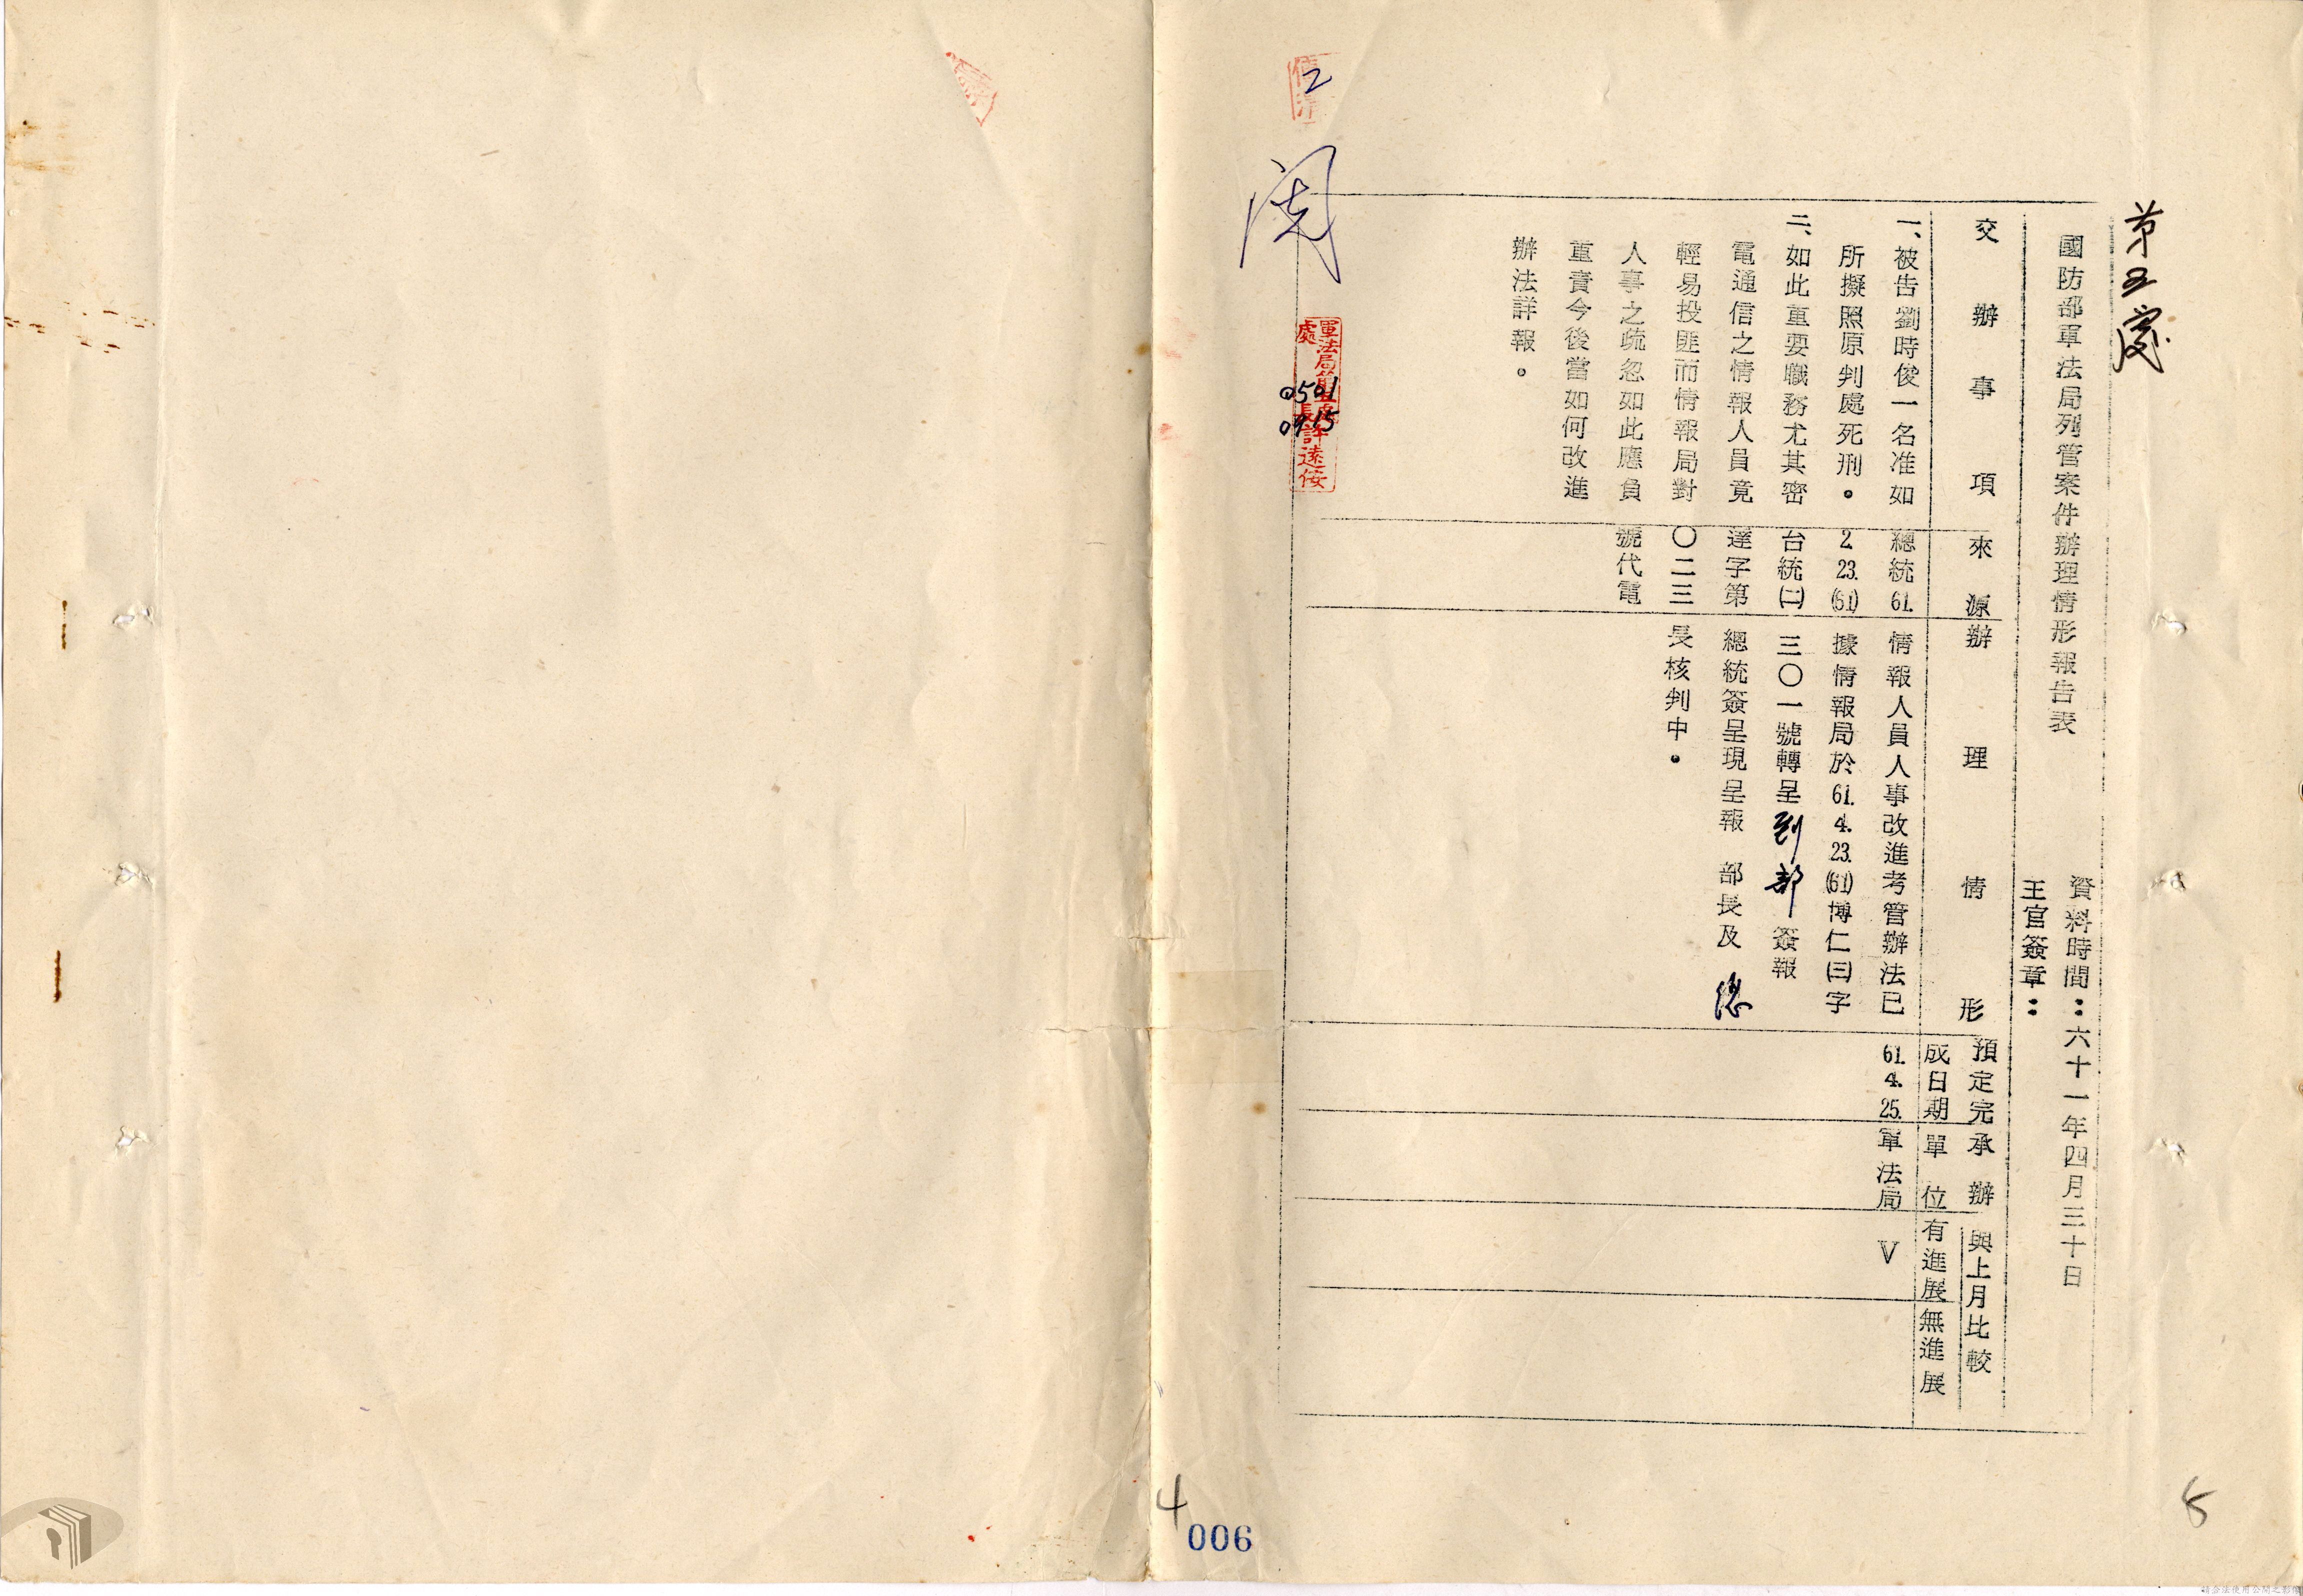 第五處
國防部軍法局列管案件辦理情形報告表
資料時間：六十一年四月三十日
王官簽章：
交辦事項
來源
辦理情形
預定完
成日期
承辦
單位
與上月比較
有進展
無進展
一、被告劉時俊一名准如
所擬照原判處死刑。
二、如此重要職務尤其密
電通信之情報人員竟
輕易投匪而情報局對
人事之疏忽如此應負
重責今後當如何改進
辦法詳報。
總統61.
2.23.(61)
台統(二)
達字第
〇二三
號代電
情報人員人事改進考管辦法已
據情報局於61.4.23.(61)博仁(三)字
三〇一號轉呈到部簽報
總統簽呈現呈報　部長及總
長核判中。
61.4.25.
軍法局
V
2
閱
軍法局第五處
處長許遠俊
0501
0915
4
006
5
請合法使用公開之影像